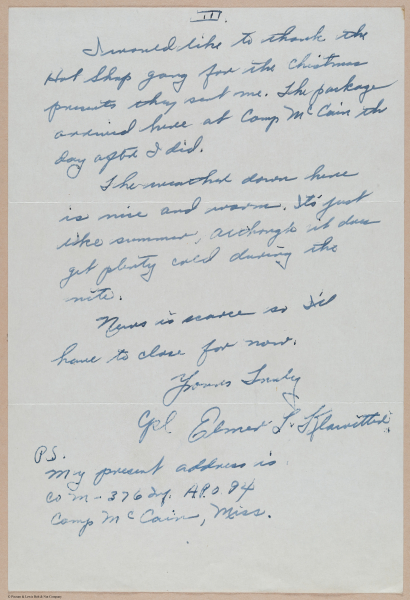 III.
I would like to thank the
Hat Shop gang for the Chistmas
presents they sent me. The package
arrived here at Camp McCain the
day after I did.
The weather down here
is nice and warm. It's just
like summer, although it does
get plenty cold during the
nite.
News is scarce so I'll
have to close for now.
Yours Truly
Cpl. Elmer L. Klawitter
P.S.
My present address is
Co M - 376 Inf. A.P.O. 94
Camp McCain, Miss.